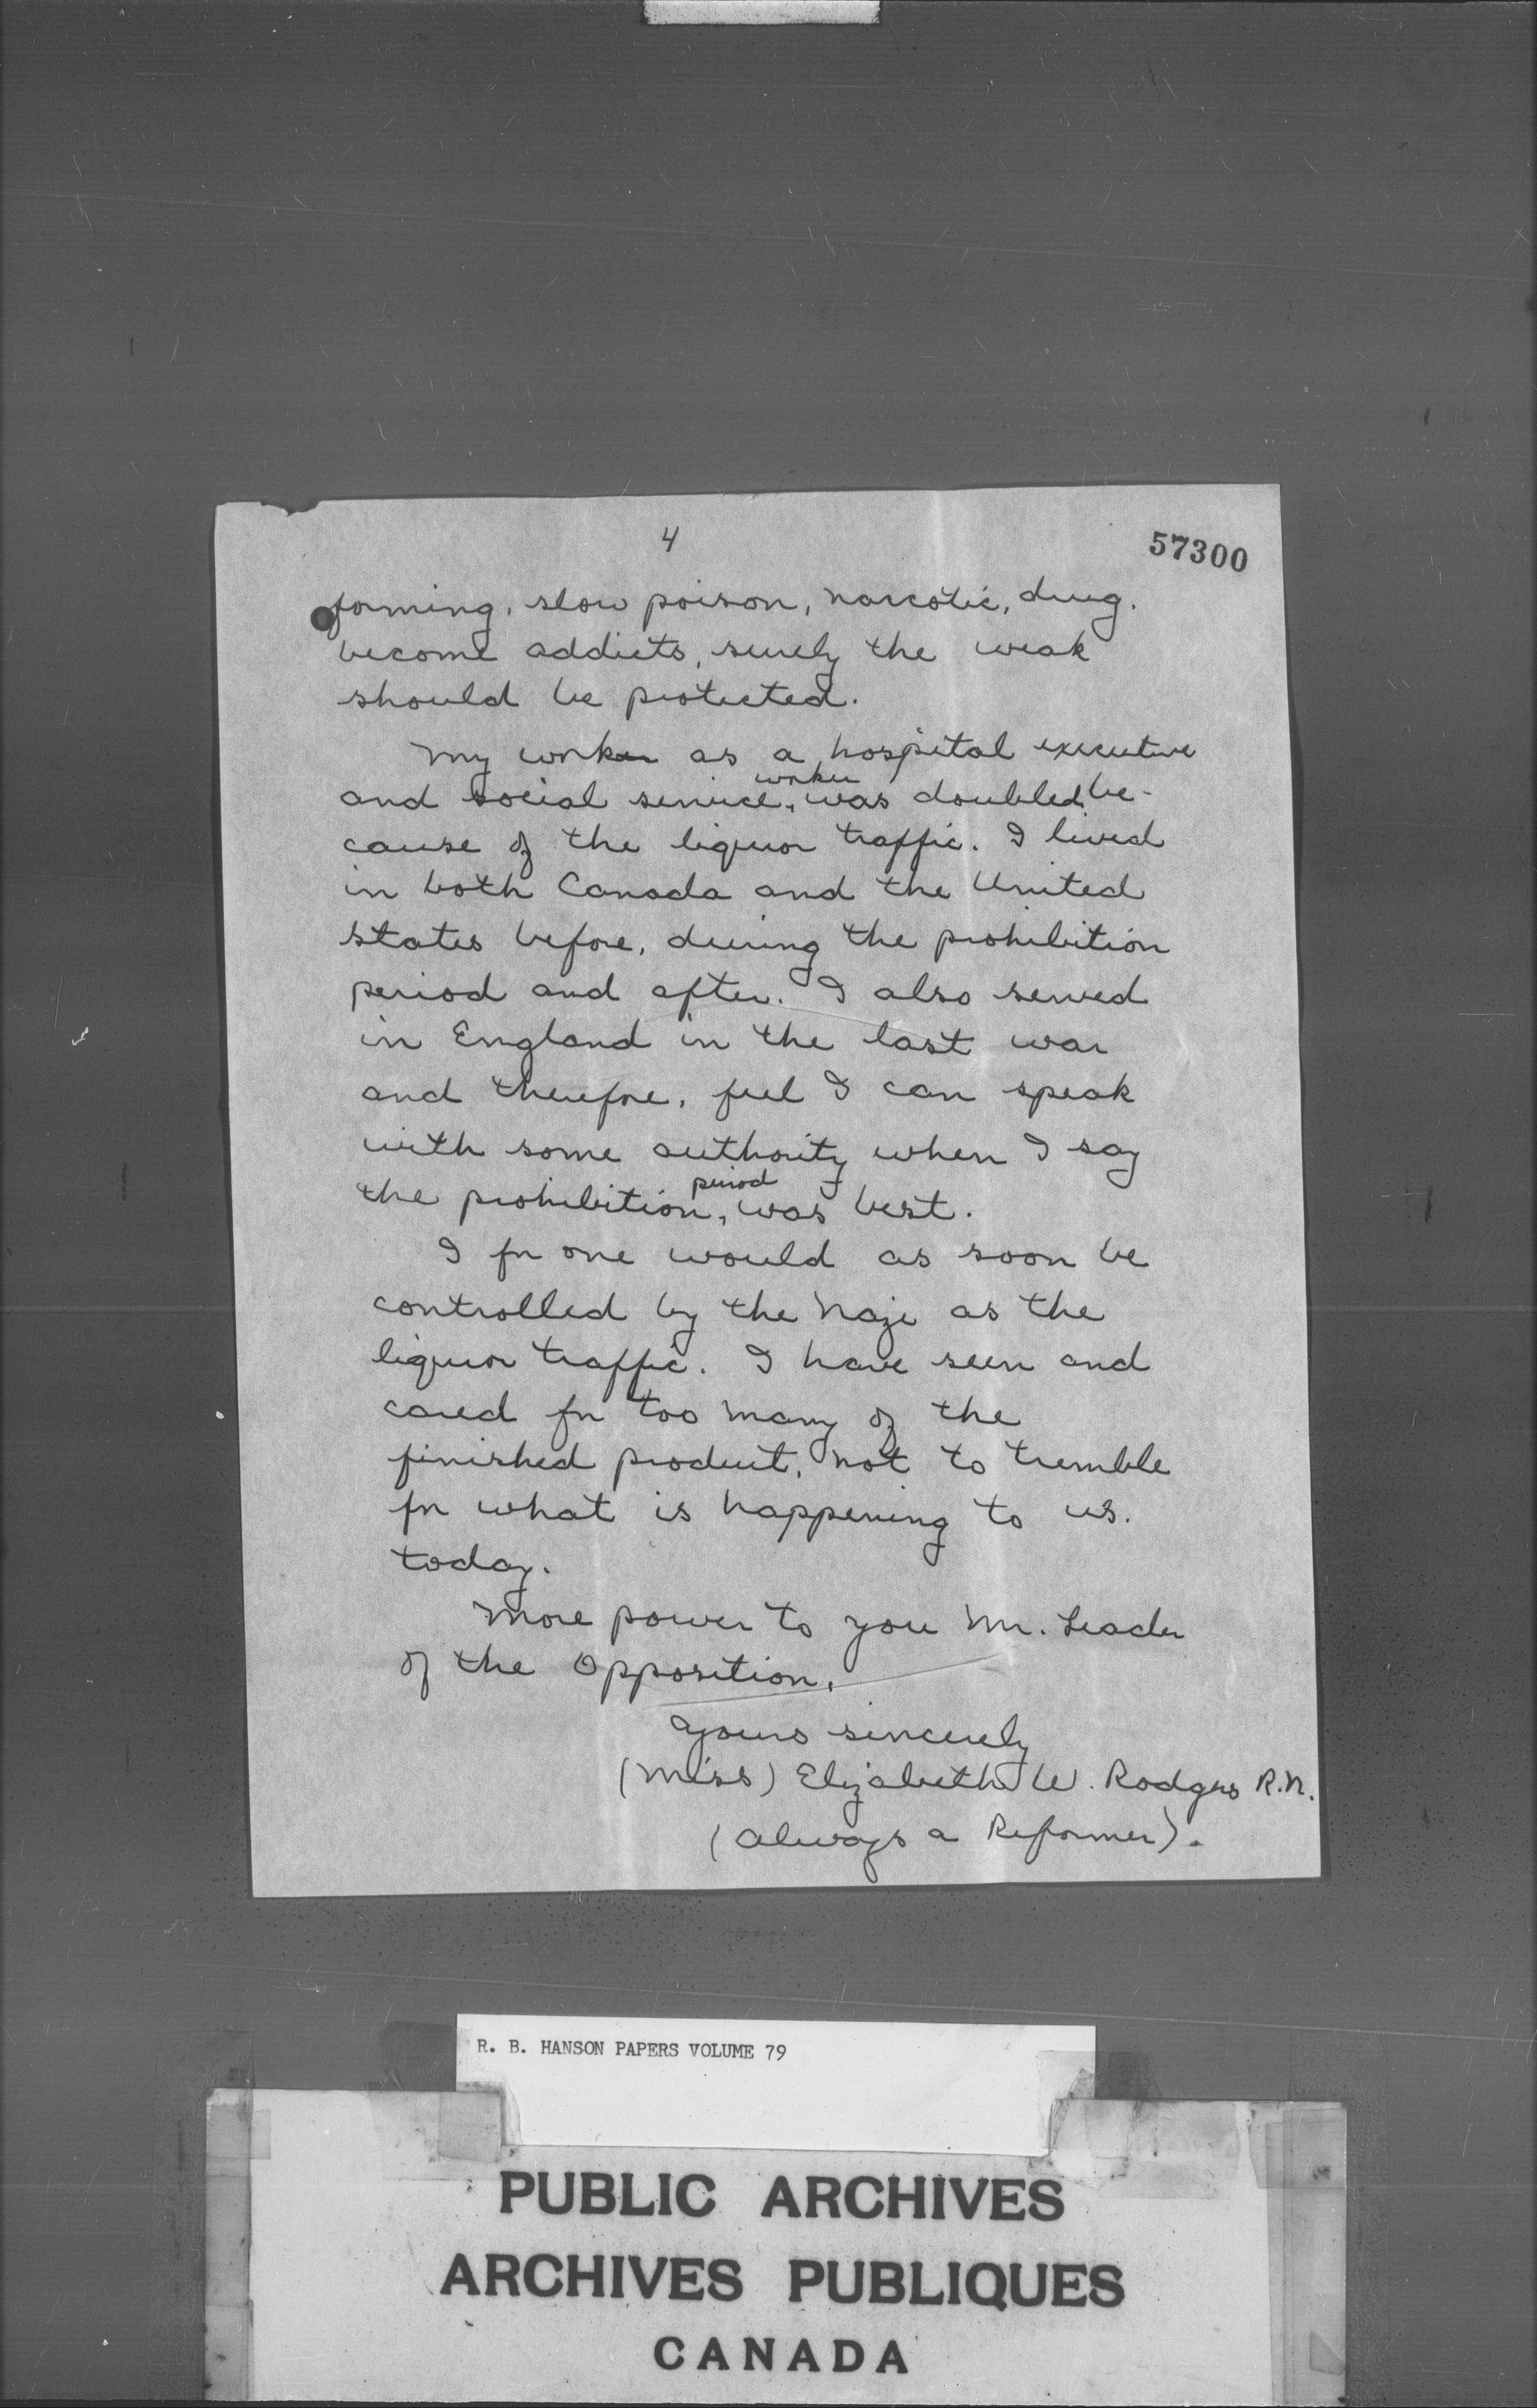 4
57300
forming, slow poison, narcotic, drug.
become addicts, surely the weak
should be protected.
My work as a hospital executive
and social service, worker was doubled be-
cause of the liquor traffic. I lived
in both Canada and the United
States before, during the prohibition
period and after. I also served
in England in the last war
and therefore, feel I can speak
with some authority when I say
the prohibition, period was best.
I for one would as soon be
controlled by the Nazi as the
liquor traffic. I have seen and
cared for too many of the
finished product, not to tremble
for what is happening to us.
today.
More power to you Mr. Leader
of the Opposition.
Yours sincerely
(Miss) Elizabeth W. Rodgers R.N.
(always a Reformer).
R. B. HANSON PAPERS VOLUME 79
PUBLIC ARCHIVES
ARCHIVES PUBLIQUES
CANADA